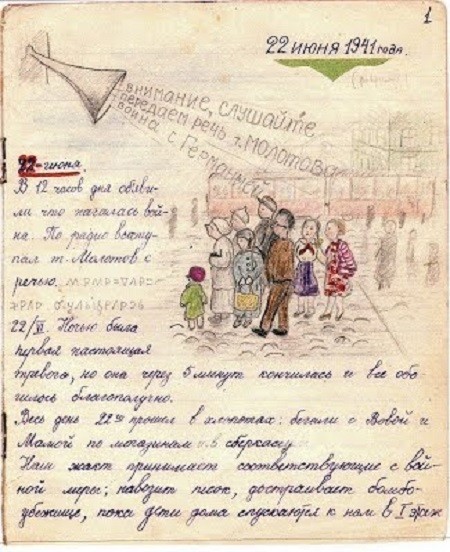 1
22 июня 1941 года.
ВНИМАНИЕ, СЛУШАЙТЕ
ПЕРЕДАЕМ РЕЧЬ т. МОЛОТОВА
ВОЙНА С ГЕРМАНИЕЙ
22-июня.
В 12 часов дня объяви-
ли что началась вой-
на. По радио высту-
пал т. Молотов с
речью.
22/VI. Ночью была
первая настоящая
тревога, но она через 5 минут кончилась и все обо-
шлось благополучно.
Весь день 22го прошел в хлопотах: бегали с Вовой и
Мамой по магазинам и в сберкассу
Наш жакт принимает соответствующие с вой-
ной меры; навозит песок, достраивает бомбо-
убежище, пока дети дома спускаются к нам в I этаж